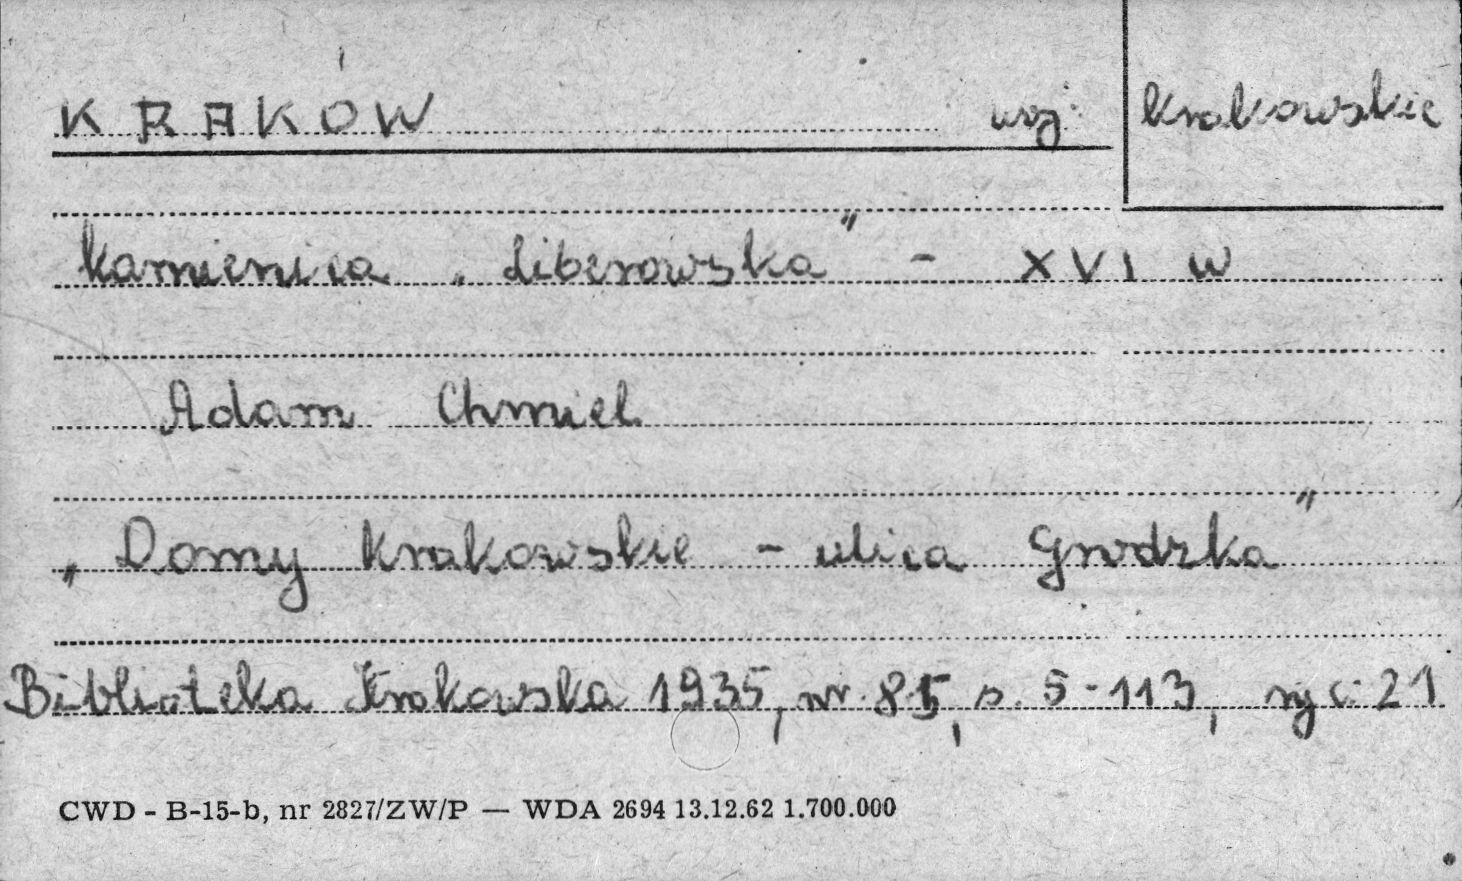 KRAKÓW woj. krakowskie
kamienica „Liberowska” - XVI w
Adam Chmiel
„Domy krakowskie - ulica Grodzka”
Biblioteka Krakowska 1935, nr. 85, s. 5-113, ryc. 21
CWD - B-15-b, nr 2827/ZW/P — WDA 2694 13.12.62 1.700.000